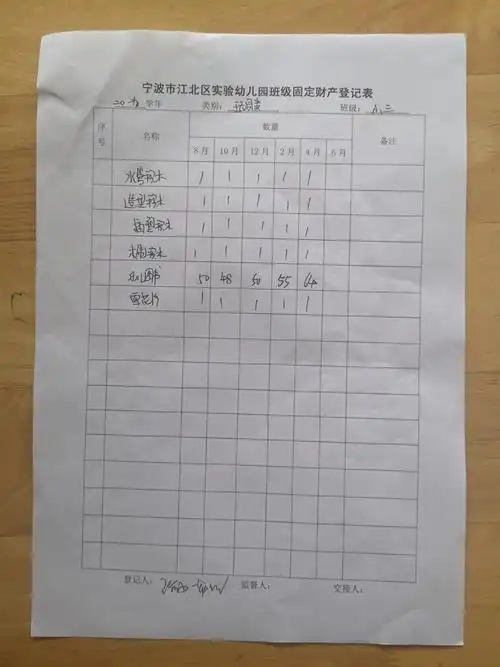 宁波市江北区实验幼儿园班级固定财产登记表
学年 类别: 玩具类 班级: 小二
序号 名称 数量 备注
8月 10月 12月 2月 4月 6月
水管积木 1 1 1 1 1
造型积木 1 1 1 1 1
插塑积木 1 1 1 1 1
木制积木 1 1 1 1 1
图书 50 48 50 55 64
雪花片 1 1 1 1 1
登记人: 监督人: 交接人: